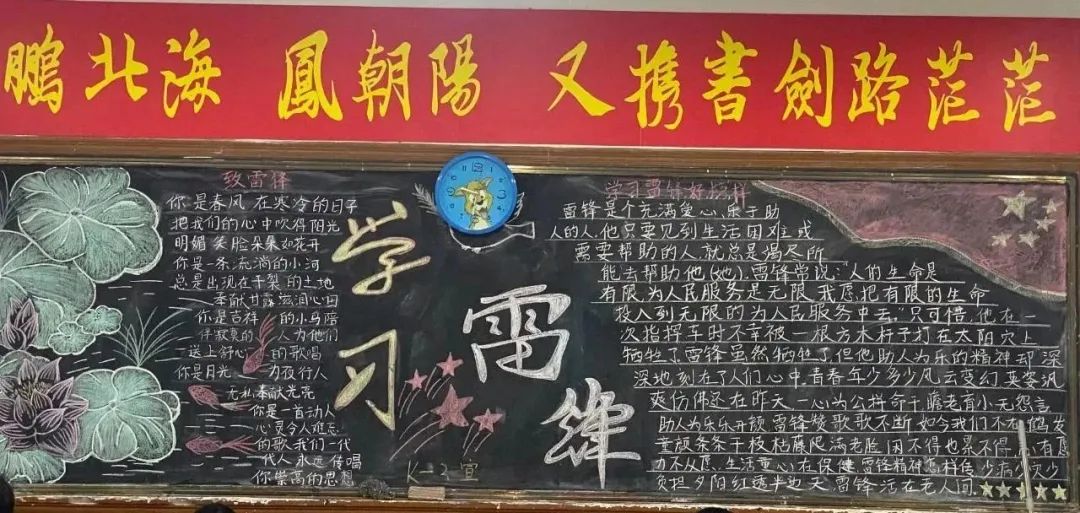 鵬北海 鳳朝陽 又携書劍路茫茫
致雷锋
你是春风 在寒冷的日子
把我们的心中吹得阳光
明媚 笑脸朵朵如花开
你是一条流淌的小河
总是出现在干裂的土地
奉献甘露滋润心田
你是吉祥的小马陪
伴寂寞的人为他们
送上舒心的歌唱
你是月光 为夜行人
无私奉献光亮
你是一首动人
心灵令人难忘
的歌 我们一代
代人永远传唱
你崇高的思想
学习
雷锋
K-2宣
学习雷锋好榜样
雷锋是个充满爱心、乐于助
人的人,他只要见到生活困难或
需要帮助的人,就总是竭尽所
能去帮助他(她),雷锋常说:“人的生命是
有限,为人民服务是无限,我愿把有限的生命
投入到无限的为人民服务中去。”只可惜,他在一
次指挥车时不幸被一根方木杆子打在太阳穴上
牺牲了,雷锋虽然牺牲了,但他助人为乐的精神却深
深地刻在了人们心中,青春年少多少风云变幻,英姿飒
爽仿佛还在昨天,一心为公拼命干,瞻老育小无怨言
助人为乐乐开颜,雷锋赞歌歌不断,如今我们不在,鹤发
童颜条条干枝枯藤爬满老脸,因不得也累不得,心有
力不从愿、生活重心在保健,雷锋精神怎样传,少病少灾少
负担,夕阳红透半边天,雷锋活在老人间